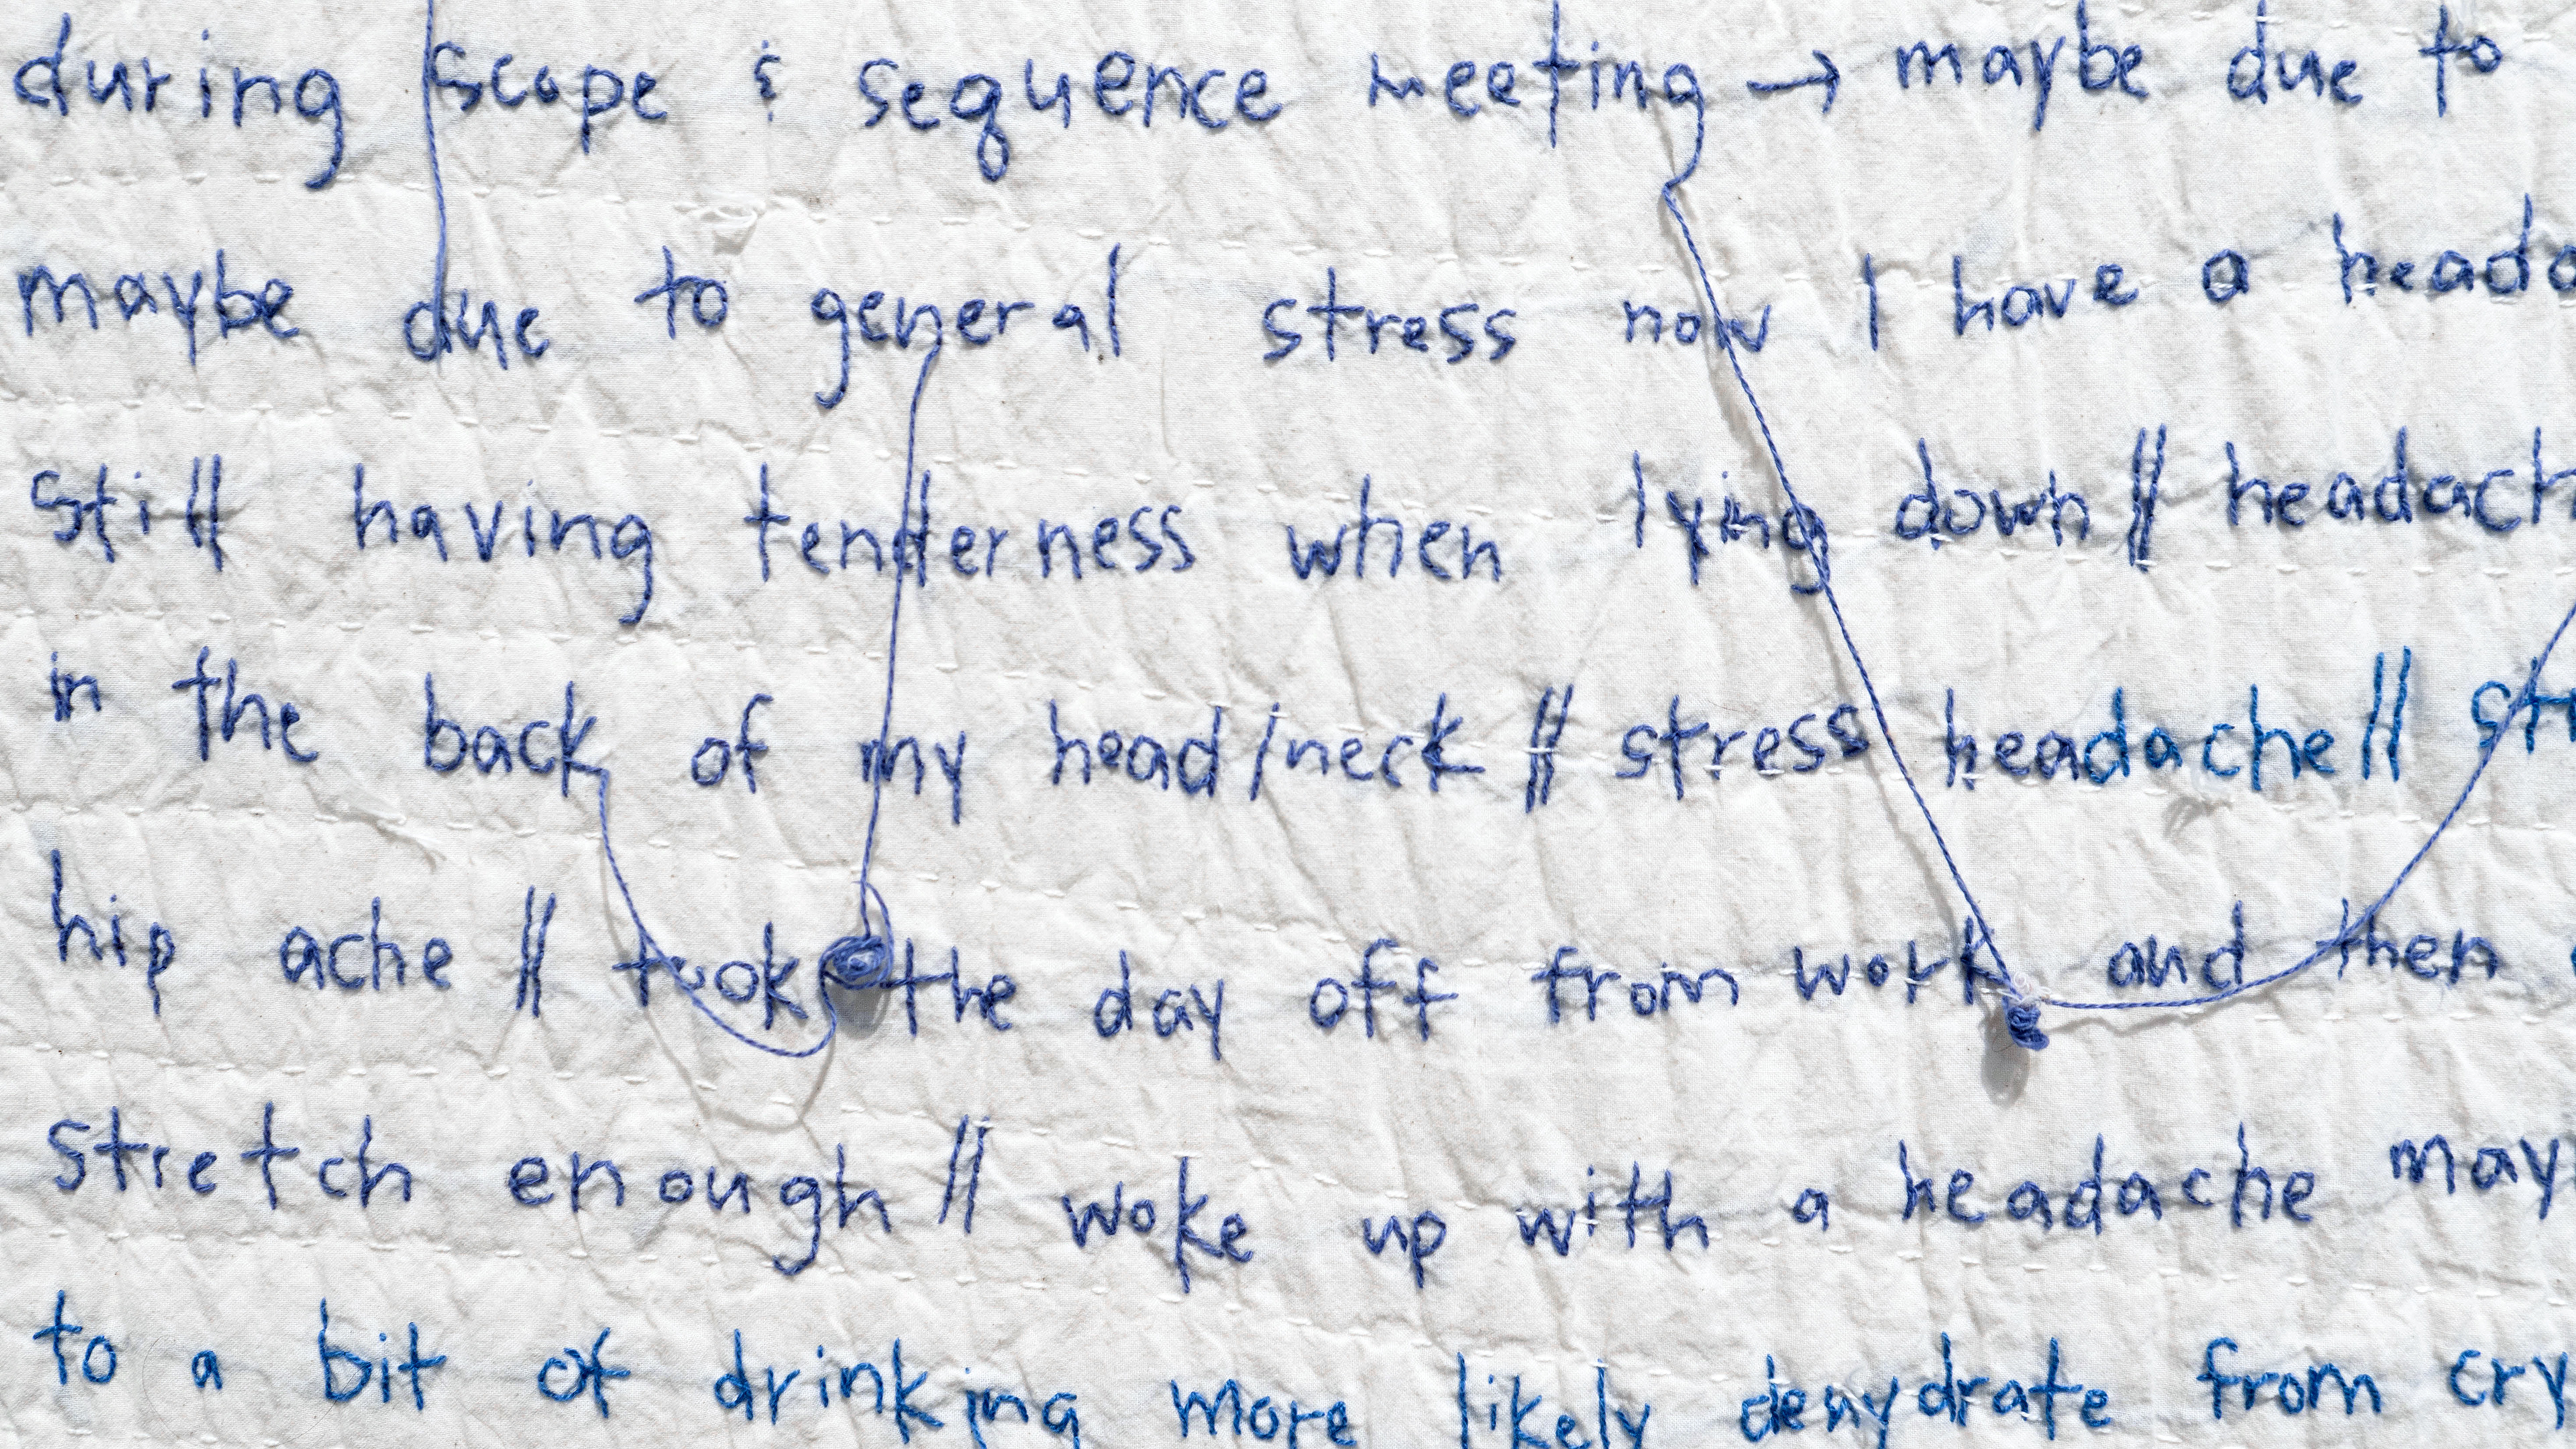 during scope & sequence meeting → maybe due to
maybe due to general stress now I have a heada
still having tenderness when lying down // headach
in the back of my head/neck // stress headache // st
hip ache // took the day off from work and then
stretch enough // woke up with a headache may
to a bit of drinking more likely dehydrate from cry